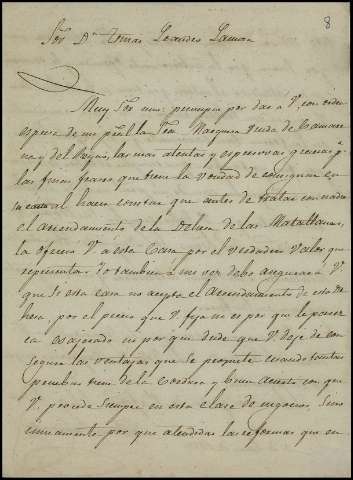 8
Sor Dn Tomas Leandro Laman
Muy Sor mio: principio por dar á V. con orden
espresa de mi pral la Sra. Marquesa Viuda de Camare-
na y del Reyno, las mas atentas y espresivas gracias p.r
las finas frases que tiene la bondad de consignar en
su carta al hacer constar que antes de tratar con nadie
el arrendamiento de la Dehesa de las Matallanas,
la ofrecia V. a esta Casa por el verdadero valor que
representa. Yo tambien a mi vez debo asegurar á V.
que si esta casa no acepta el arrendamiento de esta De
hesa, por el precio que V. fija no es por que le parez-
ca exagerado ni por que dude que V. deje de con-
seguir las ventajas que se promete cuando tantas
pruebas tiene de la cordura y buen acierto con que
V. procede siempre en esta clase de negocios, sino
unicamente por que atendidas las reformas que en